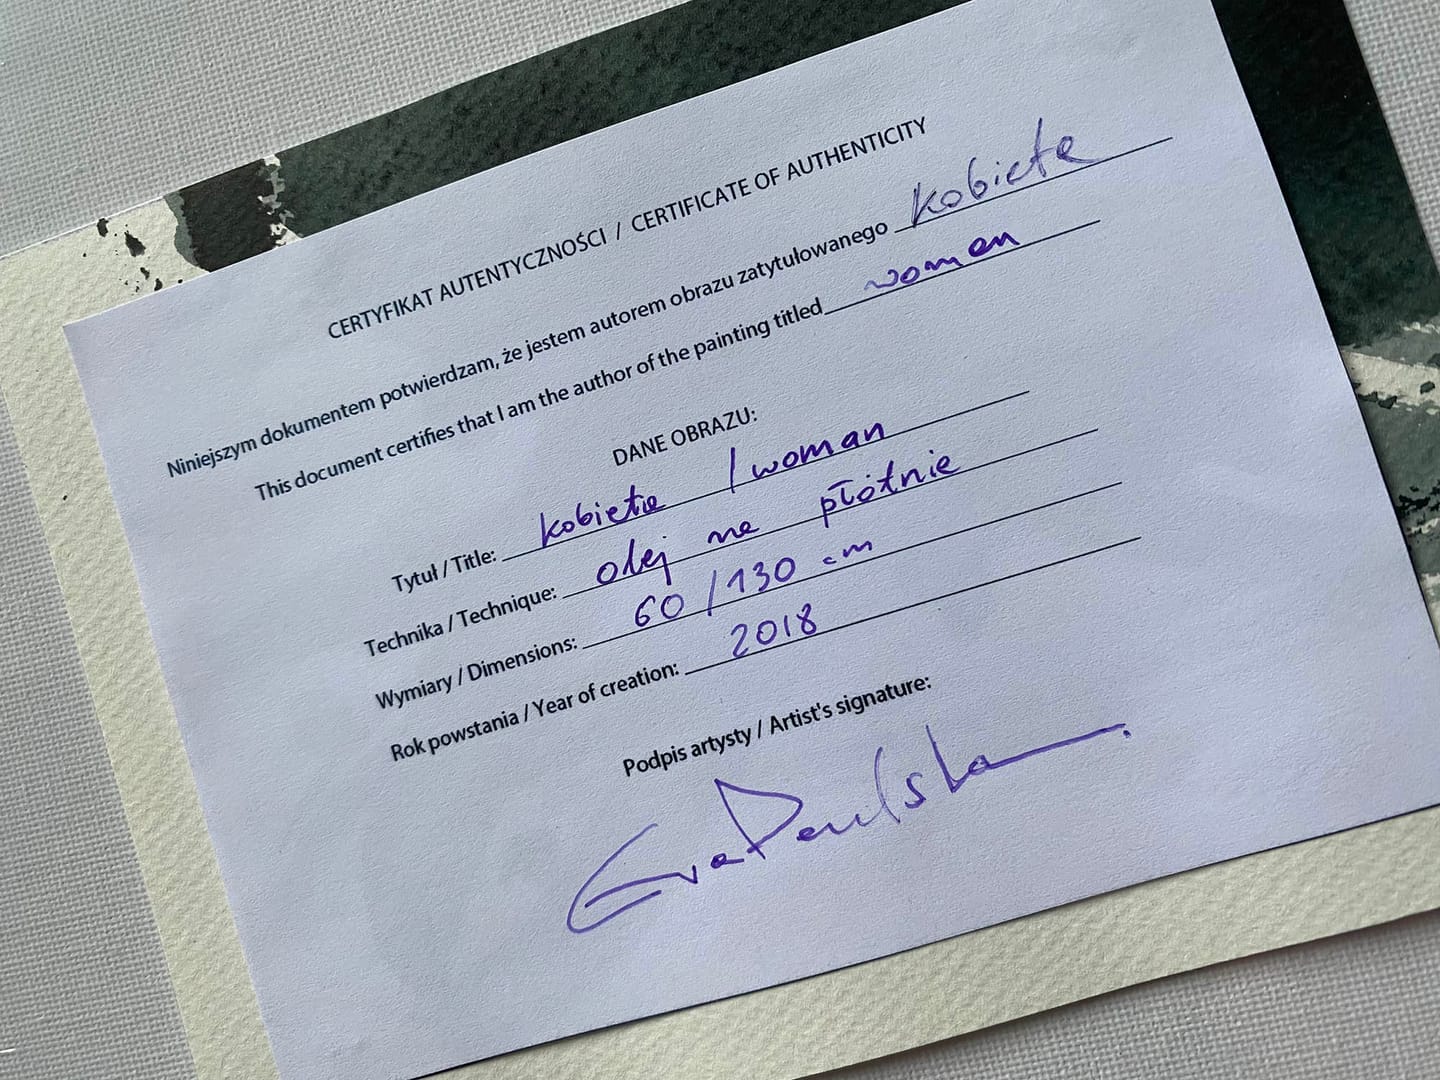 CERTYFIKAT AUTENTYCZNOŚCI / CERTIFICATE OF AUTHENTICITY
Niniejszym dokumentem potwierdzam, że jestem autorem obrazu zatytułowanego kobieta
This document certifies that I am the author of the painting titled woman
DANE OBRAZU:
Tytuł / Title: kobieta / woman
Technika / Technique: olej na płótnie
Wymiary / Dimensions: 60 / 130 cm
Rok powstania / Year of creation: 2018
Podpis artysty / Artist's signature: